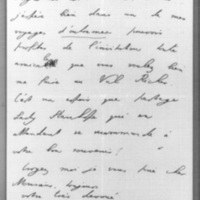 j'espère bien dans un de mes
voyages d'automne pouvoir
profiter de l'invitation toute
amicale que vous voulez bien
me faire au
C'est un espoir que partage
Lady qui en
attendant se recommande à
votre bon souvenir!
croyez moi je vous prie cher
Monsieur, toujours
votre très dévoué